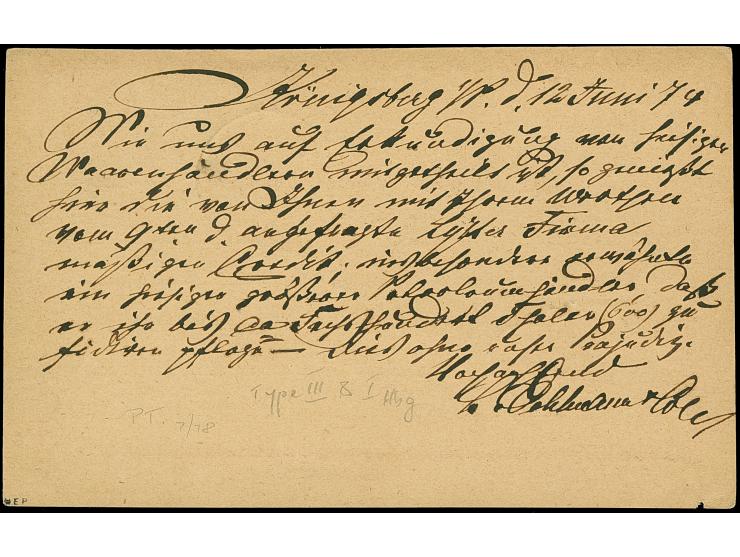 Königsberg i/P. d. 12 Juni 74
Wie uns auf Erkundigung von hiesigen
Waarenhändlern mitgetheilt ist, so genießt
hier die von Ihnen mit Ihrem Werthen
vom 9ten d. angefragte Firma
mäßigen Credit; insbesondere erwähnte
ein hiesiger größerer Petroleumhändler, daß
er ihr bis ca Sechshundert Thaler (600) zu
fidiren pflege — Dies ohne unser Präjudiz.
Hochachtend
Type III & I Hbg
PT. 7/78
HEP